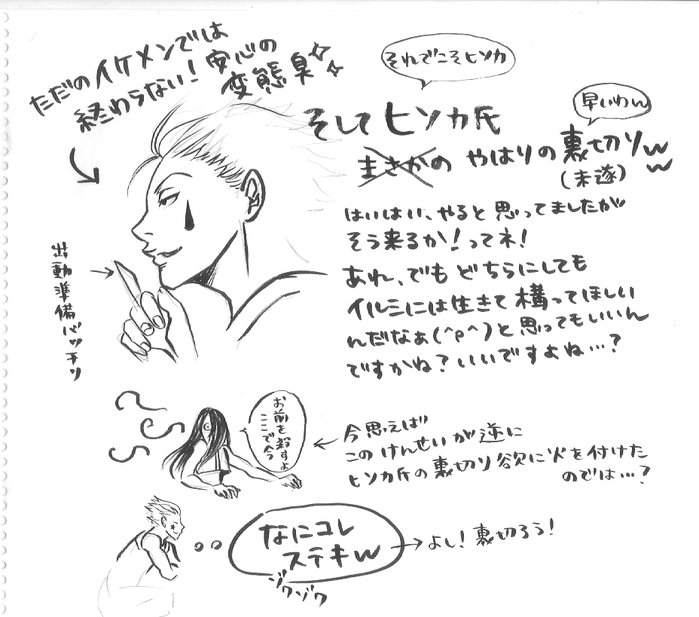 ただのイケメンでは
終わらない!安心の
変態臭
それでこそヒソカ
早いわん
そしてヒソカ氏
まさかの やはりの裏切りw
w
(未遂)
はいはい、やると思ってましたが
そう来るか!ってネ!
あれ、でもどちらにしても
イルミには生きて構ってほしい
んだなぁ(^p^)と思ってもいいん
ですかね?いいですよね…?
出動準備バッチリ
お前を殺すよ
ここで今
今思えば
このけんせいが逆に
ヒソカ氏の裏切り欲に火を付けた
のでは…?
なにコレ
ステキw
ゾクゾク
よし!裏切ろう!